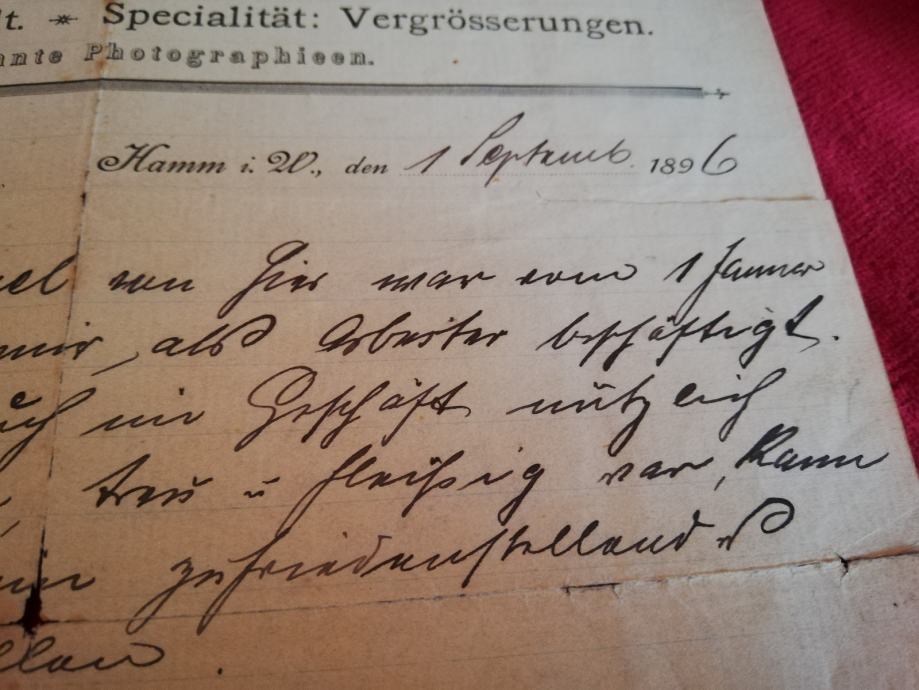 t. Specialität: Vergrösserungen.
nnte Photographieen.
Hamm i. W., den 1 Septemb. 1896
el von hier war vom 1 Januar
mir, als Arbeiter beschäftigt.
uch im Geschäft nützlich
treu u fleißig war, kann
ein zufriedenstellendes
llen.